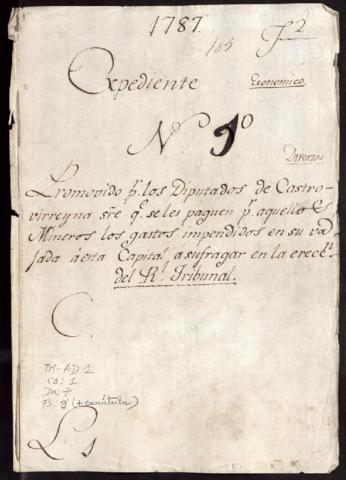 1787.
105
Expediente
Economico.
N.º 1º
Diversos
Promovido pr. los Diputados de Castro-
virreyna sre qe. se les paguen pr. aquellos
Mineros los gastos impendidos en su va-
jada á esta Capital, á sufragar en la erecn.
del Rl. Tribunal.
C.
TM-AD 1
CO: 1
Do: 7
Fs: 9 (+carátula)
L 1